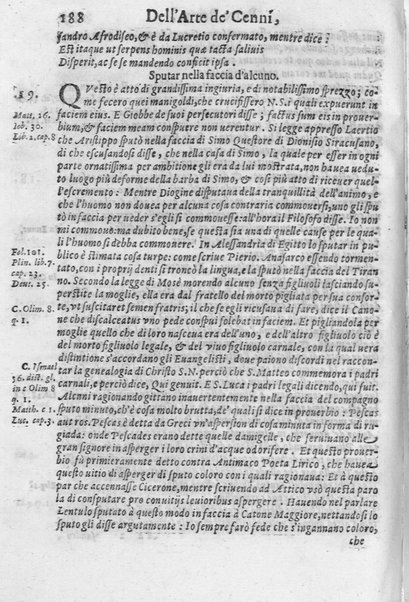 188 Dell'Arte de' Cenni,
sandro Afrodiseo, & è da Lucretio confermato, mentre dice:
Est itaque ut serpens hominis quæ tacta salivis
Disperit, ac se se mandendo conficit ipsa.
Sputar nella faccia d'alcuno.
19. QVesto è atto di grandissima ingiuria, e di notabilissimo sprezzo; co-
me fecero quei manigoldi, che crucifissero N. S. i quali expuerunt in
Matt. 26. faciem eius. E Giobbe de suoi persecutori disse; factus sum eis in prouer-
Iob. 30. bium, & faciem meam conspuere non uerentur. Si legge appresso Laertio
Lib. 2. cap. 8 che Aristippo sputò nella faccia di Simo Questore di Dionisio Siracusano,
di che escusandosi disse, che nella casa di Simo, la quale per esser in ogni
parte ornatissima per ambitione gli era da lui mostrata, non hauea uedu-
to luogo più deforme della barba di Simo, & così più atto di riceuer quel-
l'escremento: Mentre Diogine disputaua della tranquillità dell'animo, e
che l'huomo non douea per alcuna cosa contraria commouersi, uno gli spu
tò in faccia per ueder s'egli si commouesse: all'hora il Filosofo disse. Io non
mi commoue: ma dubito bene, se questa sia una di quelle cause per le qua-
li l'huomo si debba commouere. In Alessandria di Egitto lo sputar in pu-
Fol. 101. blico è stimata cosa turpe: come scriue Pierio. Anasarco essendo tormen-
Plin. lib. 7. tato, con i proprij denti si troncò la lingua, e la sputò nella faccia del Tiran
cap. 23. no. Secondo la legge di Mosè morendo alcuno senza figliuoli lasciando su-
Deut. 25. perstite la moglie, ella era dal fratello del morto pigliata per sua consor-
te, vt suscitaret semen fratris; il che se egli ricusaua di fare, dice il Cano-
C. Olim. 8. ne che discalceatus vno pede conspui solebat in faciem. Et pigliandola per
q. 1. moglie quello che di loro nasceua era dell'uno, e dell'altro figliuolo ciò è
del morto figliuolo legale, & del viuo figliuolo carnale, con la qual uera
distintione s'accordano gli Euangelisti, doue paiono discordi nel raccon-
C. Ismael tar la genealogia di Christo S. N. perciò che S. Matteo commemora i padri
56. dist. gl. carnali, e perciò dice, Qui genuit. E S. Luca i padri legali dicendo, qui fuit.
in c Olim 8 Alcuni ragionando gittano inauertentemente nella faccia del compagno
q. 1. sputo minuto, ch'è cosa molto brutta, de' quali si dice in prouerbio: Pescas
Matth. c 1. aut ros. Pescas è detta da Greci vn'aspersion di cosa minuta in forma di ru-
Luc. cap. 3. giada: onde Pescades erano dette quelle damigelle, che seruiuano alle
gran signore in asperger i loro crini d'acque odorifere. Et questo prouer-
bio fù primieramente detto contro Antimaco Poeta Lirico, che hauea
questo uitio di asperger di sputo coloro con i quali ragionaua: Et à questo
par che accennasse Cicerone, mentre scriuendo ad Attico vsò questa paro
la di conspuere pro conuitijs leuioribus aspergere. Hauendo nel parlare
Lentulo sputato à questo modo in faccia à Catone Maggiore, nettandosi lo
sputo gli disse argutamente: Io sempre farò fede che s'ingannano coloro,
che